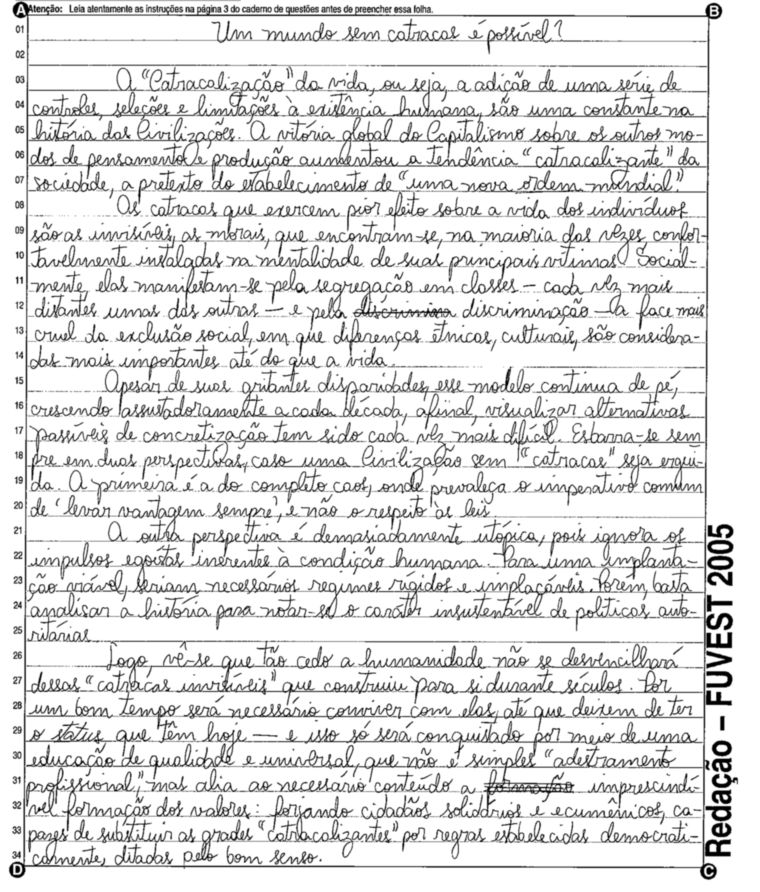 Atenção: Leia atentamente as instruções na página 3 do caderno de questões antes de preencher essa folha.
A
B
01 Um mundo sem catracas é possível?
02
03 A "Catracalização" da vida, ou seja, a adição de uma série de
04 controles, seleções e limitações à existência humana, são uma constante na
05 história das Civilizações. A vitória global do Capitalismo sobre os outros mo-
06 dos de pensamento e produção aumentou a tendência "catracalizante" da
07 sociedade, a pretexto do estabelecimento de "uma nova ordem mundial".
08 As catracas que exercem pior efeito sobre a vida dos indivíduos
09 são as invisíveis, as morais, que encontram-se, na maioria das vezes confor-
10 tavelmente instaladas na mentalidade de suas principais vítimas. Social-
11 mente, elas manifestam-se pela segregação em classes — cada vez mais
12 distantes umas das outras — e pela discrimina discriminação — a face mais
13 cruel da exclusão social, em que diferenças étnicas, culturais, são considera-
14 das mais importantes até do que a vida.
15 Apesar de suas gritantes disparidades, esse modelo continua de pé,
16 crescendo assustadoramente a cada década, afinal, visualizar alternativas
17 passíveis de concretização tem sido cada vez mais difícil. Esbarra-se sem
18 pre em duas perspectivas, caso uma Civilização sem "catracas" seja ergui-
19 da. A primeira é a do completo caos, onde prevaleça o imperativo comum
20 de 'levar vantagem sempre', e não o respeito às leis.
21 A outra perspectiva é demasiadamente utópica, pois ignora os
22 impulsos egoístas inerentes à condição humana. Para uma implanta-
23 ção viável, seriam necessários regimes rígidos e implacáveis. Porém, basta
24 analisar a história para notar-se o caráter insustentável de políticas auto-
25 ritárias.
26 Logo, vê-se que tão cedo a humanidade não se desvencilhará
27 dessas "catracas invisíveis" que construiu para si durante séculos. Por
28 um bom tempo será necessário conviver com elas, até que deixem de ter
29 o status que têm hoje — e isso só será conquistado por meio de uma
30 educação de qualidade e universal, que não é simples "adestramento
31 profissional", mas alia ao necessário conteúdo a formação imprescindí-
32 vel formação dos valores: forjando cidadãos solidários e ecumênicos, ca-
33 pazes de substituir as grades "catracalizantes" por regras estabelecidas democrati-
34 camente, ditadas pelo bom senso.
D
C
Redação – FUVEST 2005